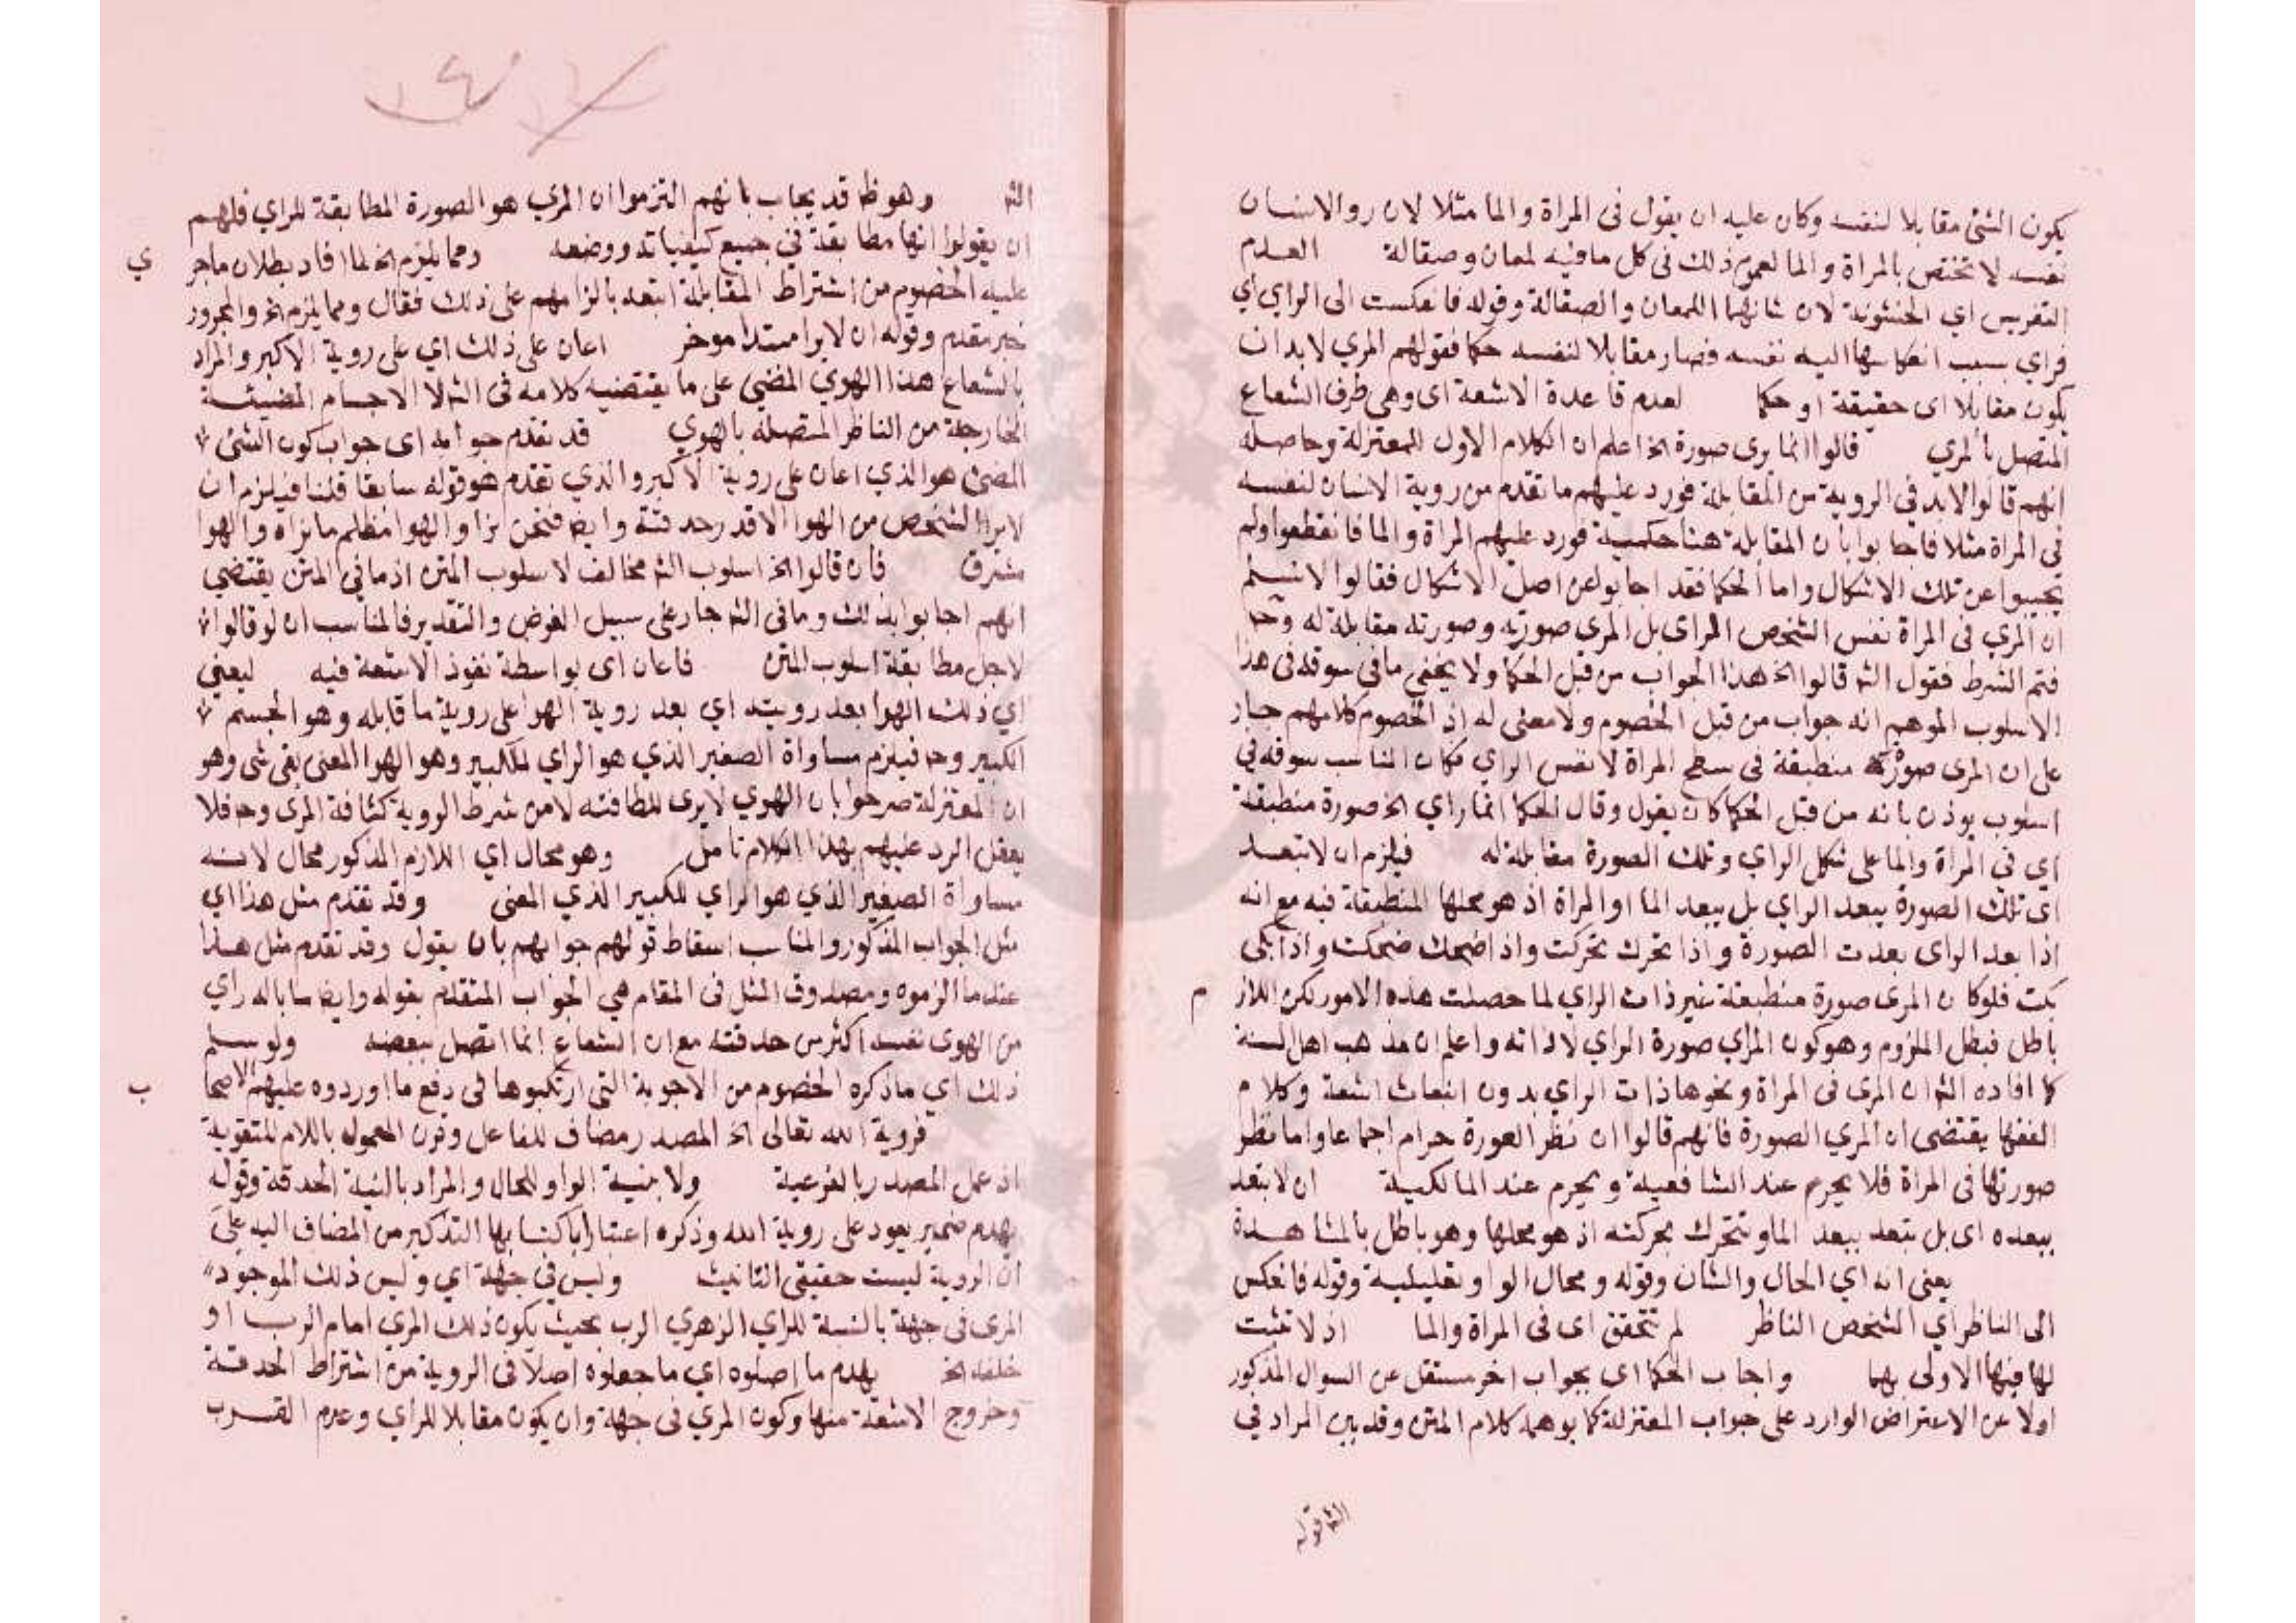 يكون الشئ مقابلا لنفسه وكان عليه ان يقول فى المراة والما مثلا لان روالانسان
نفسه لا تختص بالمراة والما لعموم ذلك فى كل ما فيه لمعان وصقالة العدم
التضريس اي الخشونة لان شانهما اللمعان والصقالة وقوله فانعكست الى الراي اي
فراي بسبب انعكاسها اليه نفسه فصار مقابلا لنفسه حكما فقولهم المري لابد ان
يكون مقابلا اى حقيقة او حكما لعدم قاعدة الاشعة اى وهى طرف الشعاع
المتصل بالمري قالوا انما يرى صورة الخ اعلم ان الكلام الاول للمعتزلة وحاصله
انهم قالوا لابد فى الروية من المقابلة فورد عليهم ما تقدم من روية الانسان لنفسه
فى المراة مثلا فاجابوا بان المقابلة هنا حكمية فورد عليهم المراة والما فانقطعوا ولم
يجيبوا عن تلك الاشكال واما الحكما فقد اجابوا عن اصل الاشكال فقالوا لا نسلم
ان المري فى المراة نفس الشخص الراى بل المري صورته وصورته مقابلة له وح
فتم الشرط فقول الش قالوا الخ هذا الجواب من قبل الحكما ولا يخفى ما فى سوقه فى هذا
الاسلوب الموهم انه جواب من قبل الخصوم ولا معنى له اذ الخصوم كلامهم جار
على ان المرى صورة منطبقة فى سطح المراة لا نفس الراي فكان المناسب سوقه فى
اسلوب يوذن بانه من قبل الحكما كان يقول وقال الحكما انما راي الخ صورة منطبقة
اي فى المراة والما على شكل الراي وتلك الصورة مقابلة له فيلزم ان لا تبعد
اى تلك الصورة ببعد الراي بل ببعد الما او المراة اذ هو محلها المنطبقة فيه مع انه
اذا بعد الراى بعدت الصورة واذا تحرك تحركت واذا ضحك ضحكت واذا بكى
بكت فلو كان المرى صورة منطبعة غير ذات الراي لما حصلت هذه الامور لكن اللاز
م
باطل فبطل الملزوم وهو كون المراي صورة الراي لا ذاته واعلم ان مذهب اهل السنة
كما افاده الش ان المرى فى المراة ونحوها ذات الراي بدون انبعاث اشعة وكلام
الفقها يقتضى ان المري الصورة فانهم قالوا ان نظر العورة حرام اجماعا واما نظر
صورتها فى المراة فلا يحرم عند الشافعية ويحرم عند المالكية ان لا تبعد
ببعده اى بل تبعد ببعد الما وتتحرك بحركته اذ هو محلها وهو باطل بالمشاهدة
يعنى انه اي الحال والشان وقوله ومحال الواو تعليلية وقوله فانعكس
الى الناظر اي الشخص الناظر لم تتحقق اى فى المراة والما اذ لا تثبت
لها فيها الاولى بهما واجاب الحكما اي بجواب اخر مستقل عن السوال المذكور
اولا عن الاعتراض الوارد على جواب المعتزلة كما يوهمه كلام المتن وقد بين المراد في
الش قوله
الش وهو ظ قد يجاب بانهم التزموا ان المري هو الصورة المطابقة للراي فلهم
ان يقولوا انها مطابقة في جميع كيفياته ووضعه ومما يلزم الخ لما افاد بطلان ما جر
ي
عليه الخصوم من اشتراط المقابلة اتبعه بالزامهم على ذلك فقال ومما يلزم الخ والمجرور
خبر مقدم وقوله ان لا يرا مبتدا موخر اعان على ذلك اي على روية الاكبر والمراد
بالشعاع هذا الهوي المضي على ما يقتضيه كلامه فى الش لا الاجسام المضيئة
الخارجة من الناظر المتصلة بالهوي قد تقدم جوابه اى جواب كون الشئ
المضئ هو الذي اعان على روية الاكبر والذي تقدم هو قوله سابقا قلنا فيلزم ان
لا يرا الشخص من الهوا الا قدر حدقته وايضا فنحن نرا والهوا مظلم ما نراه والهوا
مشرق فان قالوا الخ اسلوب الش مخالف لاسلوب المتن اذ ما في المتن يقتضي
انهم اجابوا بذلك وما فى الش جار على سبيل الفرض والتقدير فالمناسب ان لو قالوا
لاجل مطابقة اسلوب المتن فاعان اى بواسطة نفوذ الاشعة فيه ليعني
اي ذلك الهوا بعد رويته اي بعد روية الهوا على روية ما قابله وهو الجسم
الكبير وح فيلزم مساواة الصغير الذي هو الراي للكبير وهو الهوا المعنى بقى شى وهو
ان المعتزلة صرحوا بان الهوي لا يرى للطافته لان من شرط الروية كثافة المرى وح فلا
يعقل الرد عليهم بهذا الكلام تامل وهو محال اي اللازم المذكور محال لانه
مساواة الصغير الذي هو الراي للكبير الذي المعنى وقد تقدم مثل هذا اي
مثل الجواب المذكور والمناسب اسقاط قولهم جوابهم بان يقول وقد تقدم مثل هذا
عند ما الزموه ومصدوق المثل فى المقام هي الجواب المتقدم بقوله وايضا ما باله راي
من الهوى نفسه اكثر من حدقته مع ان الشعاع انما اتصل ببعضه ولو سلم
ذلك اي ما ذكره الخصوم من الاجوبة التى ارتكبوها فى دفع ما اوردوه عليهم الاصحا
ب
فروية الله تعالى الخ المصدر مضاف للفاعل وقرن المعمول باللام للتقوية
اذ عمل المصدر بالفرعية ولا بنية الواو للحال والمراد بالبنية الحدقة وقوله
يهدم ضمير يعود على روية الله وذكره اعتبارا باكتسابها التذكير من المضاف اليه على
ان الروية ليست حقيقى التانيث وليس في جهة اي وليس ذلك الموجود
المرى فى جهة بالنسبة للراي الزهري الرب بحيث يكون ذلك المري امام الرب او
خلفه الخ يهدم ما اصلوه اي ما جعلوه اصلا فى الروية من اشتراط الحدقة
وخروج الاشعة منها وكون المري فى جهة وان يكون مقابلا للراي وعدم القرب